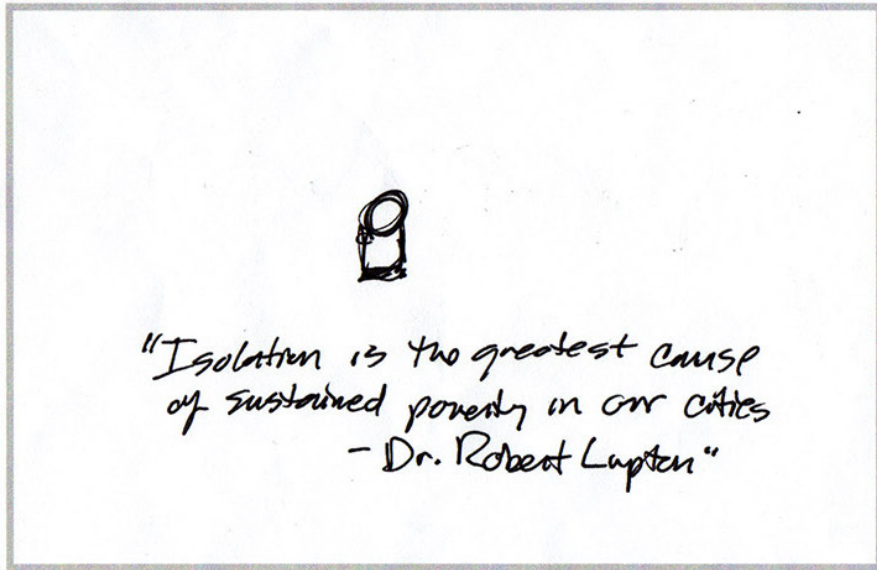 "Isolation is the greatest cause
of sustained poverty in our cities
- Dr. Robert Lupton"